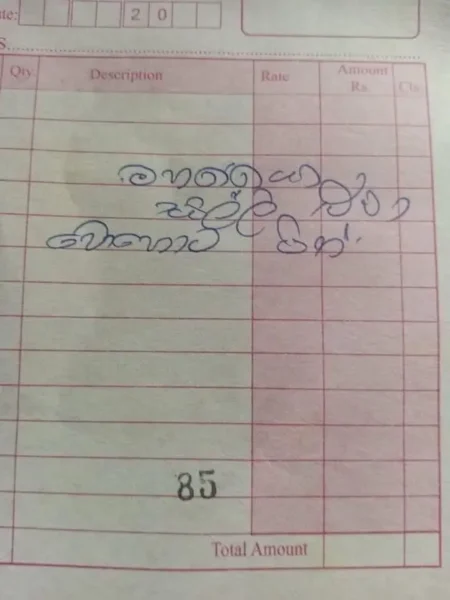 ate:
2 0
s.
Qty Description Rate Amount Rs. Cts
මහත්තයො
සල්ලි දීවා
බොහොට පින්.
85
Total Amount